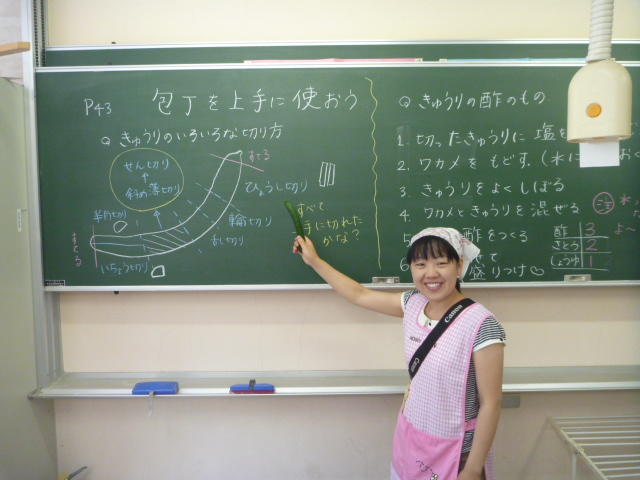 P43
包丁を上手に使おう
Q きゅうりのいろいろな切り方
せん切り
↑
斜め薄切り
すてる
ひょうし切り
半月切り
輪切り
すべて
手に切れた
かな?
すてる
いちょう切り
Q きゅうりの酢のもの
1. 切ったきゅうりに塩を
2. ワカメをもどす。(水に おく
3. きゅうりをよくしぼる
4. ワカメときゅうりを混ぜる
酢をつくる
6.
盛りつけ♡
注
酢 3
さとう 2
しょうゆ 1
Canon
Canon